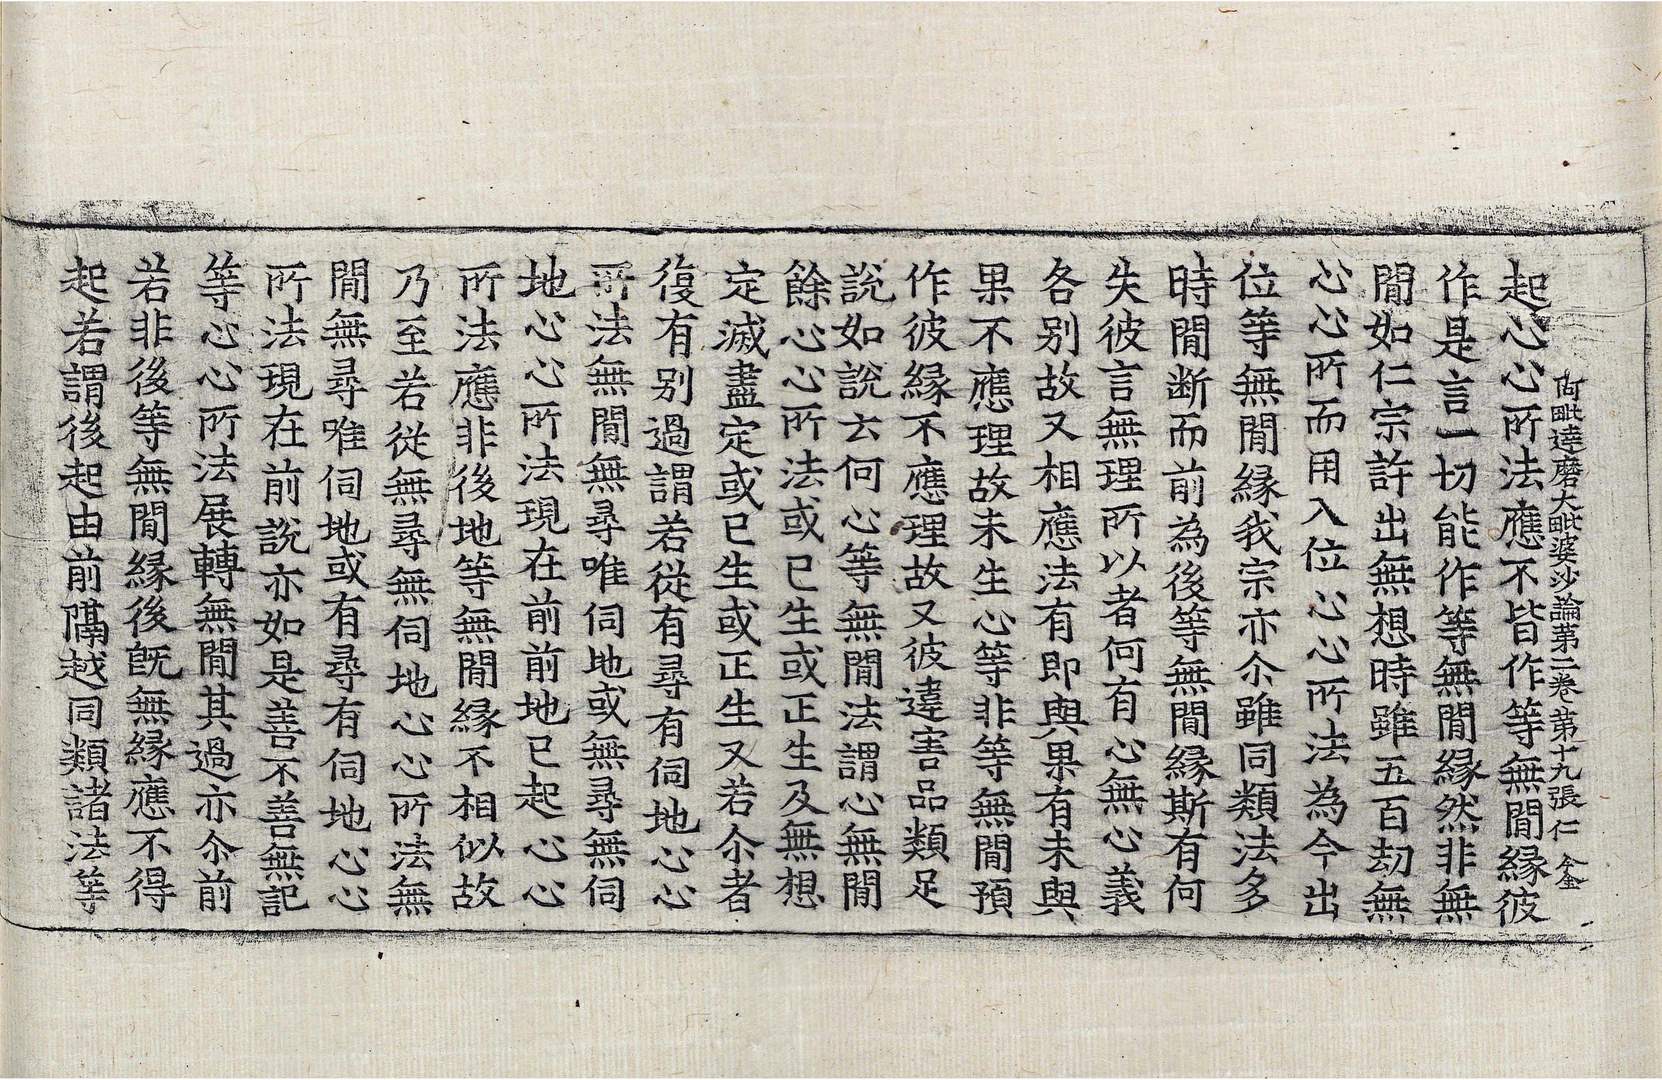 毗達磨大毗婆沙論第二卷 第十九張 仁
起心心所法應不皆作等無閒緣彼
作是言一切能作等無閒緣然非無
閒如仁宗許出無想時雖五百劫無
心心所而用入位心心所法為今出
位等無閒緣我宗亦尒雖同類法多
時閒断而前為後等無閒緣斯有何
失彼言無理所以者何有心無心義
各別故又相應法有即與果有未與
果不應理故未生心等非等無閒預
作彼緣不應理故又彼違害品類足
說如說云何心等無閒法謂心無閒
餘心心所法或已生或正生及無想
定滅盡定或已生或正生又若尒者
復有別過謂若從有尋有伺地心心
所法無閒無尋唯伺地或無尋無伺
地心心所法現在前前地已起心心
所法應非後地等無閒緣不相似故
乃至若從無尋無伺地心心所法無
閒無尋唯伺地或有尋有伺地心心
所法現在前說亦如是善不善無記
等心心所法展轉無閒其過亦尒前
若非後等無閒緣後既無緣應不得
起若謂後起由前隔越同類諸法等